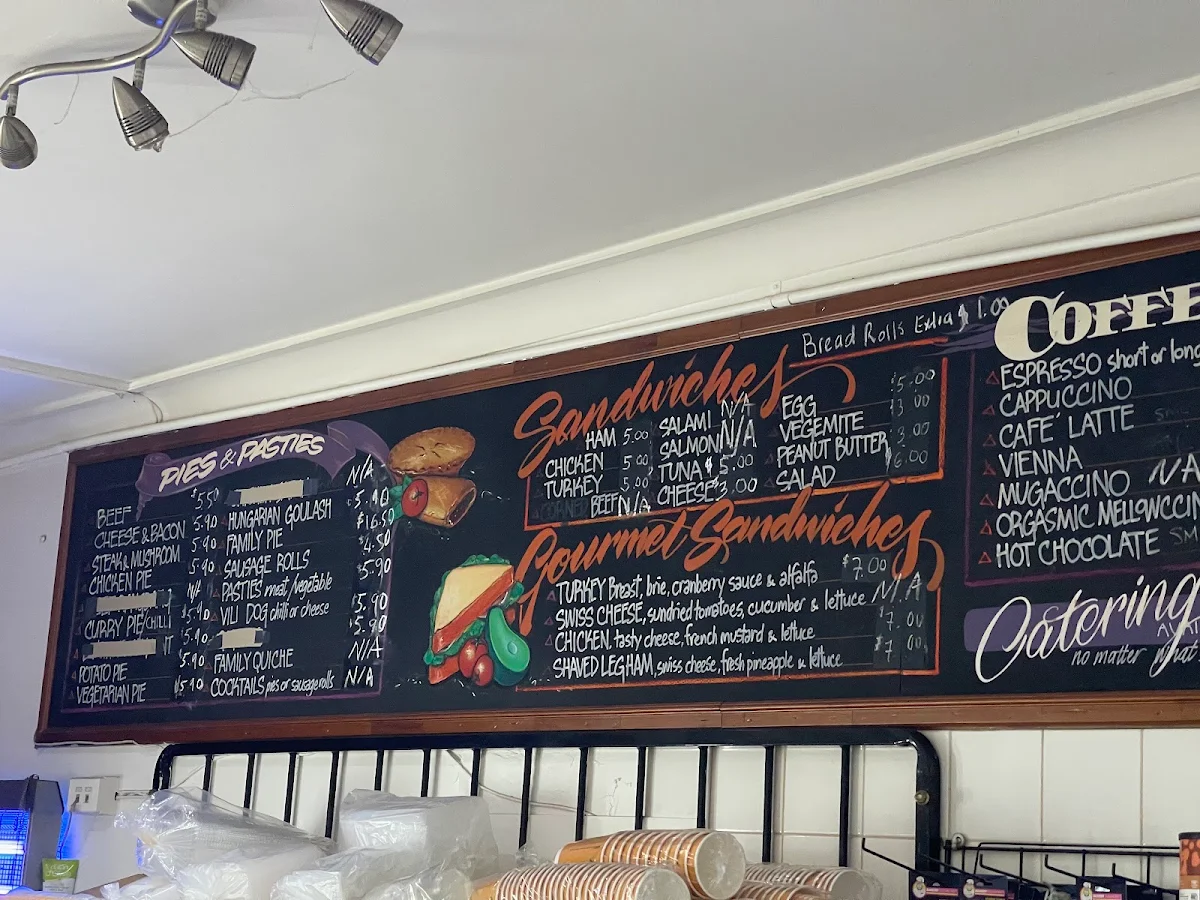 PIES & PASTIES
BEEF $5.50
CHEESE & BACON 5.90
STEAK & MUSHROOM 5.90
CHICKEN PIE 5.90
N/A
CURRY PIE/CHILLI 5.90
5.40
POTATO PIE 5.90
VEGETARIAN PIE $5.40
N/A
HUNGARIAN GOULASH 5.90
FAMILY PIE $16.50
SAUSAGE ROLLS 4.50
PASTIES meat/vegetable 5.90
VILI DOG chilli or cheese 5.90
5.90
FAMILY QUICHE N/A
COCKTAILS pies or sausage rolls N/A
Sandwiches
Bread Rolls Extra $1.00
HAM 5.00
CHICKEN 5.00
TURKEY 5.00
CORNED BEEF N/A
SALAMI N/A
SALMON N/A
TUNA $5.00
CHEESE $3.00
EGG $5.00
VEGEMITE 3.00
PEANUT BUTTER 3.00
SALAD 6.00
Gourmet Sandwiches
TURKEY Breast, brie, cranberry sauce & alfalfa $7.00
SWISS CHEESE, sundried tomatoes, cucumber & lettuce N/A
CHICKEN, tasty cheese, french mustard & lettuce 7.00
SHAVED LEGHAM, swiss cheese, fresh pineapple & lettuce 7.00
COFFE
ESPRESSO short or long
CAPPUCCINO
CAFE' LATTE
VIENNA
MUGACCINO N/A
ORGASMIC MELLOWCCIN
HOT CHOCOLATE SM
Catering
no matter what